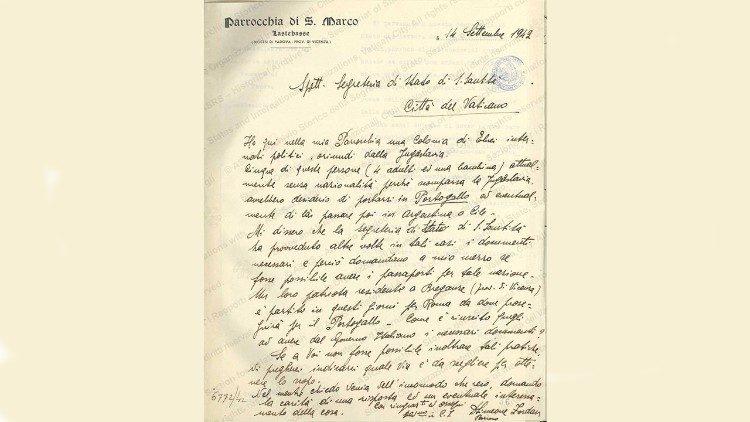 Parrocchia di S. Marco
Lastebasse
(DIOCESI DI PADOVA - PROV. DI VICENZA)
14 Settembre 1942
Spett. Segreteria di Stato di S. Santità
Città del Vaticano
Ho qui nella mia Parrocchia una Colonia di Ebrei inter-
nati politici, oriundi dalla Jugoslavia.
Cinque di queste persone (4 adulti ed una bambina) attual-
mente senza nazionalità perchè scomparsa la Jugoslavia
avrebbero desiderio di portarsi in Portogallo ed eventual-
mente di là passare poi in Argentina o Cile.
Mi dissero che la Segreteria di Stato di S. Santità
ha provveduto altre volte in tali casi i documenti
necessari e perciò domandano a mio mezzo se
fosse possibile avere i passaporti per tale nazione.
Un loro patriota residente a Breganze (prov. di Vicenza)
è partito in questi giorni per Roma da dove prose-
guirà per il Portogallo. Come è riuscito quegli
ad avere dal Governo Italiano i necessari documenti?
Se a Voi non fosse possibile inoltrare tali pratiche,
di indicarmi quale via è da scegliere per otte-
nere lo scopo.
Nel mentre chiedo venia dell'incomodo che reco, domando
la carità di una risposta ed un eventuale interessa-
mento della cosa.
Con ringraziamenti ed ossequi
in C. J.
6772/42